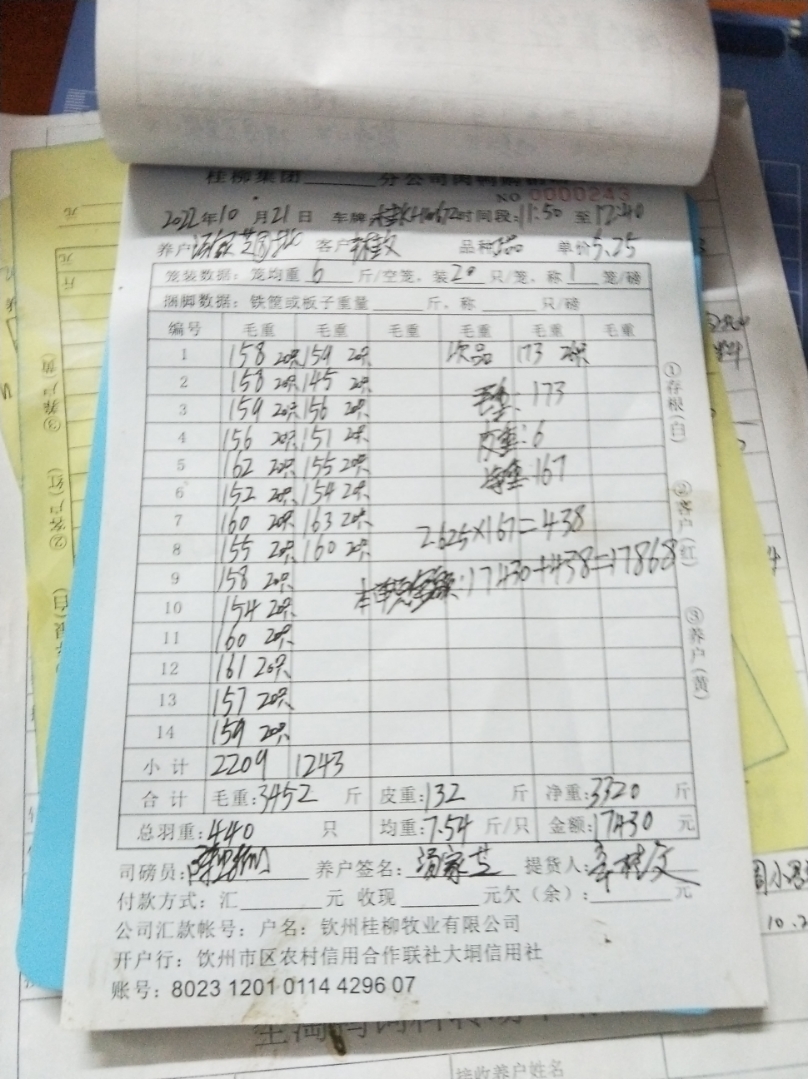 桂柳集团 分公司肉鸭购销
NO 0000243
2022年10月21日 车牌 时间段:11:50 至 12:40
养户 客户 品种 单价5.25
笼装数据:笼均重6斤/空笼,装20只/笼,称1笼/磅
捆脚数据:铁筐或板子重量 斤,称 只/磅
编号 毛重 毛重 毛重 毛重 毛重 毛重
1 158 20只 159 20只 次品 173
2 158 20只 145 20只
3 159 20只 156 20只 毛重: 173
4 156 20只 151 20只 皮重: 6
5 162 20只 155 20只 净重: 167
6 152 20只 154 20只
7 160 20只 163 20只 2.625×167=438
8 155 20只 160 20只
9 158 20只 :17430+438=17868
10 154 20只
11 160 20只
12 161 20只
13 157 20只
14 159 20只
小计 2209 1243
合计 毛重:3452 斤 皮重:132 斤 净重:3320 斤
总羽重:440 只 均重:7.54 斤/只 金额:17430 元
司磅员: 养户签名:汤家芝 提货人:
付款方式:汇 元 收现 元欠(余): 元
公司汇款帐号:户名:钦州桂柳牧业有限公司
开户行:饮州市区农村信用合作联社大垌信用社
账号:8023 1201 0114 4296 07
①存根(白)
②客户(红)
③养户(黄)
接收养户姓名